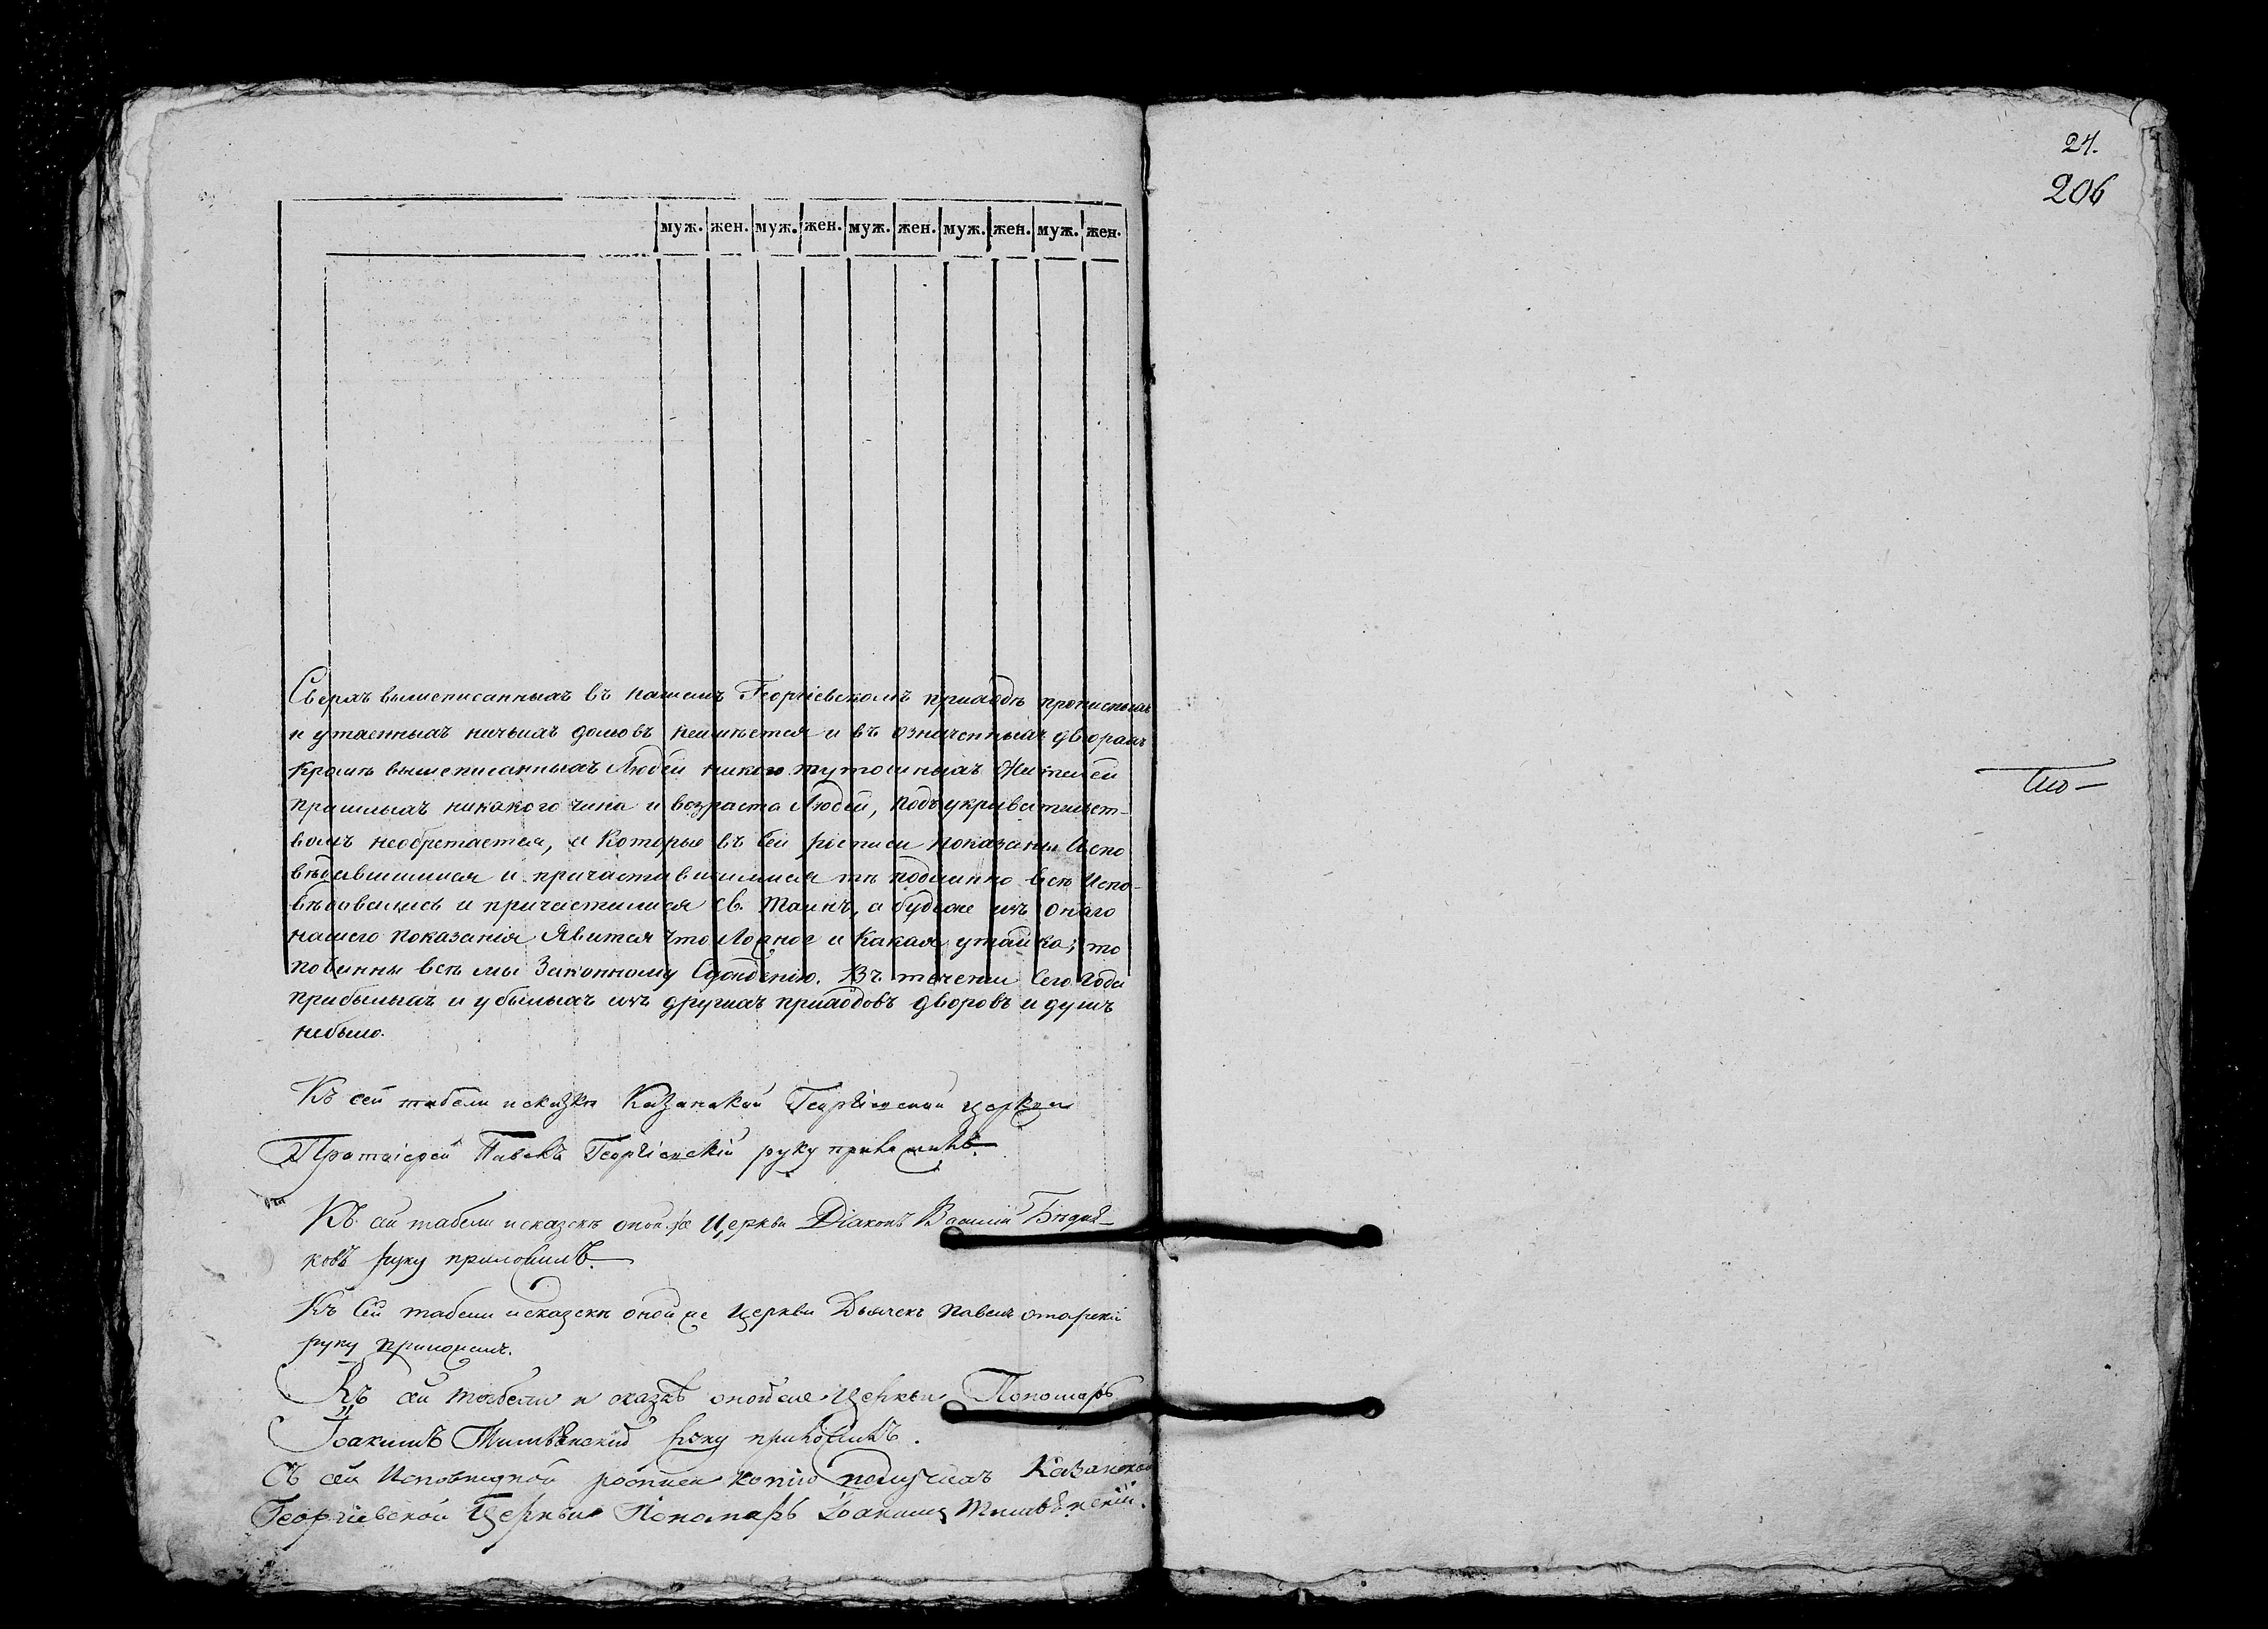 24.
206
муж. жен. муж. жен. муж. жен. муж. жен. муж. жен.
Сверхъ вышеписанныхъ въ нашемъ Георгіевскомъ приходѣ прописныхъ
и утаенныхъ ничьихъ домовъ неимѣется и въ означенныхъ дворахъ
кромѣ вышеписанныхъ Людей никого тутошныхъ Жителей
пришлыхъ никакого чина и возраста Людей, подъ укривательст-
вомъ необретается, и которые въ Сей росписи показаны Испо
вѣдавшимися и причастившимися тѣ подлинно всѣ Испо-
вѣдовались и причастилися св. таинъ, а будеже изъ онаго
нашего показанія Явится что Ложное и Какая утайка; то
повинны всѣ мы Законному Сужденію. Въ теченіи Сего Года
прибылыхъ и убылыхъ изъ другихъ приходовъ дворовъ и душъ
небыло.
Къ сей табели и сказкѣ Казанской Георгіевской церкви
Протоіерей Павелъ Георгіевскій руку приложилъ.
Къ сей табели и сказкѣ оной же Церкви Діаконъ Василій
ковъ руку приложилъ.
Къ Сей табели и сказкѣ оной же Церкви Дьячекъ Павелъ
руку приложилъ.
Къ сей табели и сказкѣ оной же Церкви Пономарь
Іоакимъ руку приложилъ.
Съ сей Исповѣдной росписи копію получилъ Казанской
Георгіевской Церкви Пономарь Іоакимъ